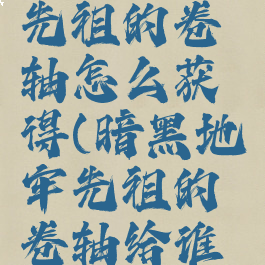 先祖的卷
轴怎么获
得(暗黑地
牢先祖的
卷轴给谁